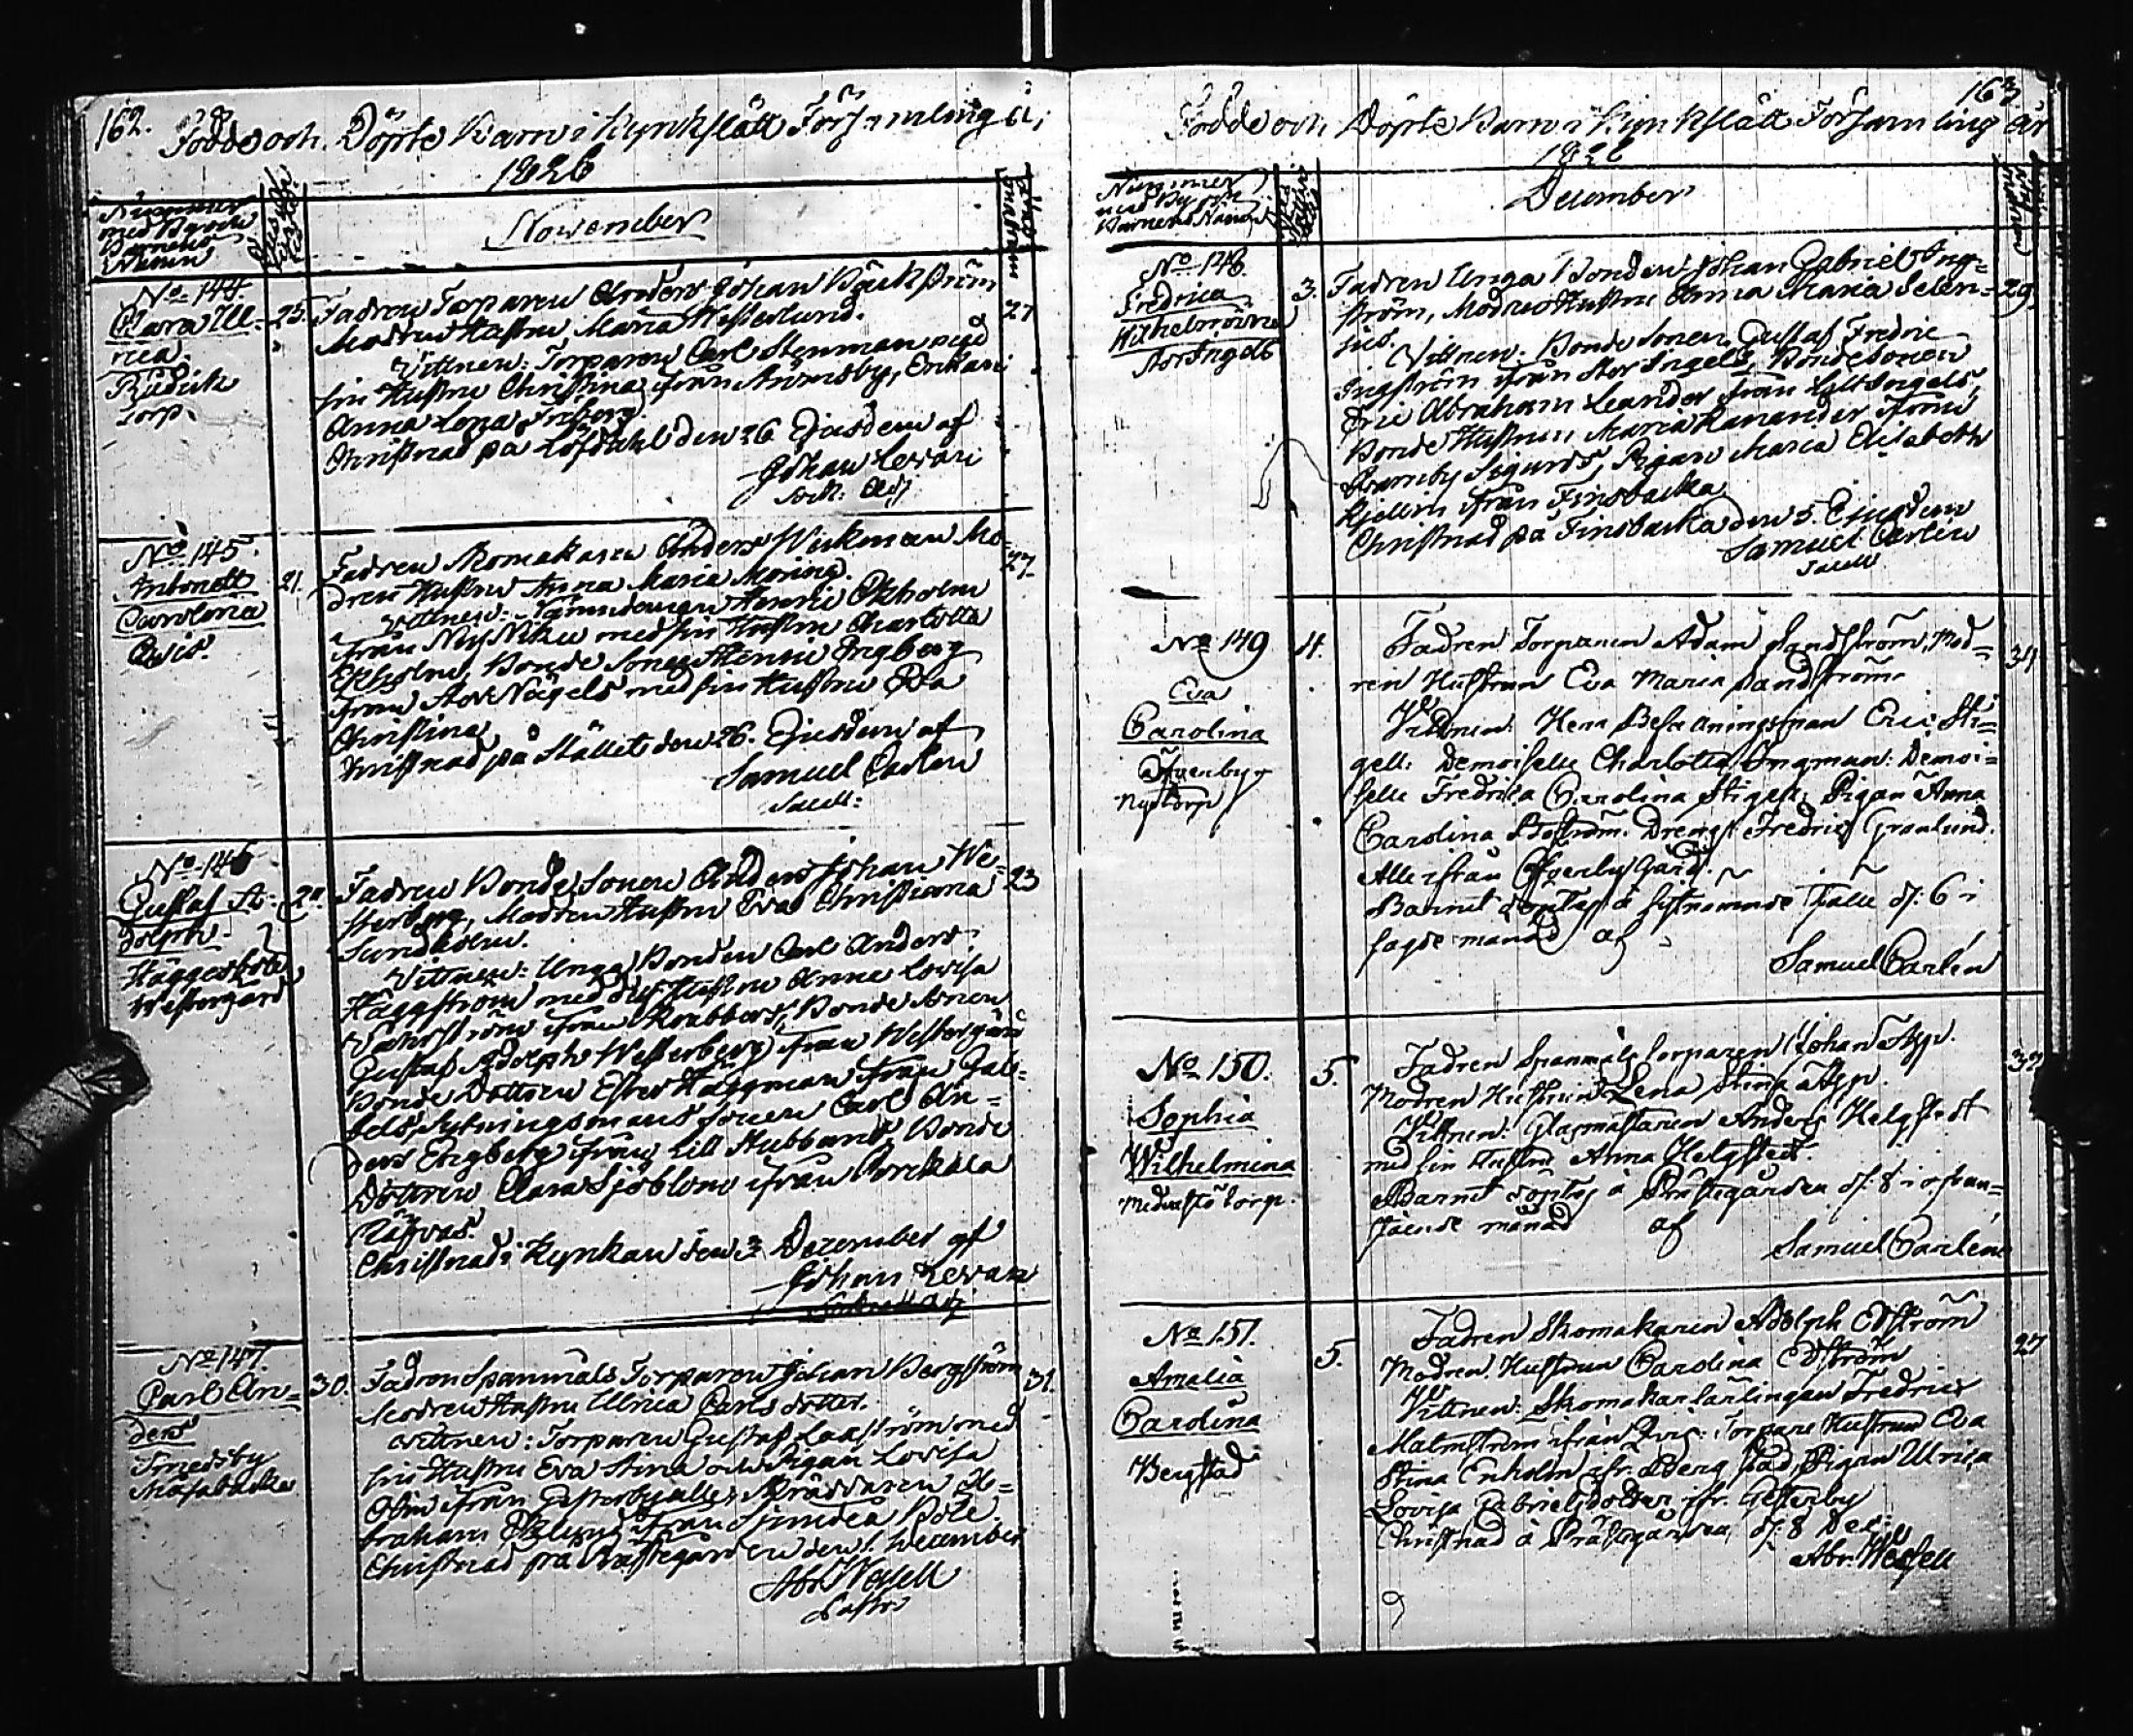 162.
Födde och Döpte Barn i Kyrkslätt Församling år
1826
Nummer
med Byn och
Barnens
Namn
November
No 144.
Clara Ul-
rica
Rudick
Torp.
25.
Fadren Torparen Anders Johan Bäckström
Modren Hustru Maria Westerlund.
27
Vittnen: Torparen Carl Stenman med
sin Hustru Christina från Enkan
Anna Lovisa Friberg.
Christnad på Löfdahl den 26 Ejusdem af
Johan Levan
Sock: Adj
No 145.
Antonett
Carolina
Qvis.
21.
Fadren Skomakaren Anders Wickman Mo-
dren Hustru Anna Maria Moring.
27.
Vittnen: Nämndeman Henric Ekholm
från med sin Hustru Charlotta
Ekholm, Bonde Sonen Henric Engberg
från Stor Nägels med sin Hustru Eva
Christina
Christnad på Stället den 26. Ejusdem af
Samuel Carlen
Sacell:
No 146
Gustaf A-
dolph
Häggesböle
Westergård
Fadren Bonde Sonen Anders Johan We-
sterberg, Modren Hustru Eva Christina
Sundholm.
23
Vittnen: Unga Bonden Carl Anders
Häggström med dess Hustru Anna Lovisa
från Krabbars, Bonde Sonen
Gustaf Adolph Westerberg från Westergård
Bonde Dottren Ester Häggman från Gab-
bels, Sytningsmans sonen Carl An-
ders Engberg från Lill Stubbans, Bonde
Dottren Clara Sjöblom från Porckala
Räfvas.
Christnad i Kyrkan den 3 December af
Johan Levan
No 147.
Carl An-
ders
Smedsby
Måsabacka
30.
Fadren Spanmåls Torparen Johan Bergström
Modren Hustru Ulrica Carlsdotter.
31.
Vittnen: Torparen Gustaf Laxström med
sin Hustru Eva Stina och Pigan Lovisa
från Gesterby alla, Skräddaren A-
braham från Böle.
Christnad på Prästegården den 1. December
Abr. Wesell
Pastor
163
Födde och Döpte Barn i Kyrkslätt Församling år
1826
Nummer
med Byn och
Barnens Namn
December
No 148.
Fredrica
Wilhelmina
Stor Ingels
3.
Fadren Unga Bonden Johan Gabriel Ing-
ström, Modren Hustru Anna Maria Selen-
jus.
29.
Vittnen: Bonde Sonen Gustaf Fredric
Ingström från Stor Ingels, Bondesonen
Eric Abraham Leander från Lill Ingels,
Bonde Hustrun Maria Ranander från
Strömby Sigurds, Pigan Maria Elisabeth
Kjellin från Finsbacka
Christnad på Finsbacka den 5. Ejusdem
Samuel Carlén
Sacell
No 149
Eva
Carolina
Öfverby
Nystorp
4.
Fadren Torparen Adam Sandström, Mod-
ren Hustrun Eva Maria Sandström
34
Vittnen: Herr Besickningsman Eric Sti-
gell. Demoiselle Charlotta Ingman: Demoi-
selle Fredrica Carolina Stigell, Pigan Anna
Carolina Drengen Fredric Grönlund.
Alle ifrån Öfverby Gård.
Barnet döptes å sistnämnde ställe d: 6 i
sagde månad af
Samuel Carlén
No 150.
Sophia
Wilhelmina
Medvastö torp.
5.
Fadren Spanmåls torparen Johan Asp.
Modren Hustrun Lena Stina Asp.
32
Vittnen: Glasmästaren Anders Helgstedt
med sin Hustru Anna Helgstedt.
Barnet döptes å Prästegården d: 8 i ofvan-
stående månad af
Samuel Carlén
No 151.
Amalia
Carolina
Bergstad
5.
Fadren Skomakaren Adolph Edström
Modren Hustrun Carolina Edström
27
Vittnen: Skomakarlärlingen Fredric
Malmström ifrån Qvis. Torpare Hustrun Eva
Stina Enholm ifr. Bergstad, Pigan Ulrica
Lovisa Gabrielsdotter ifr. Gesterby
Christnad å Prästegården d: 8 Dec:
Abr. Wesell